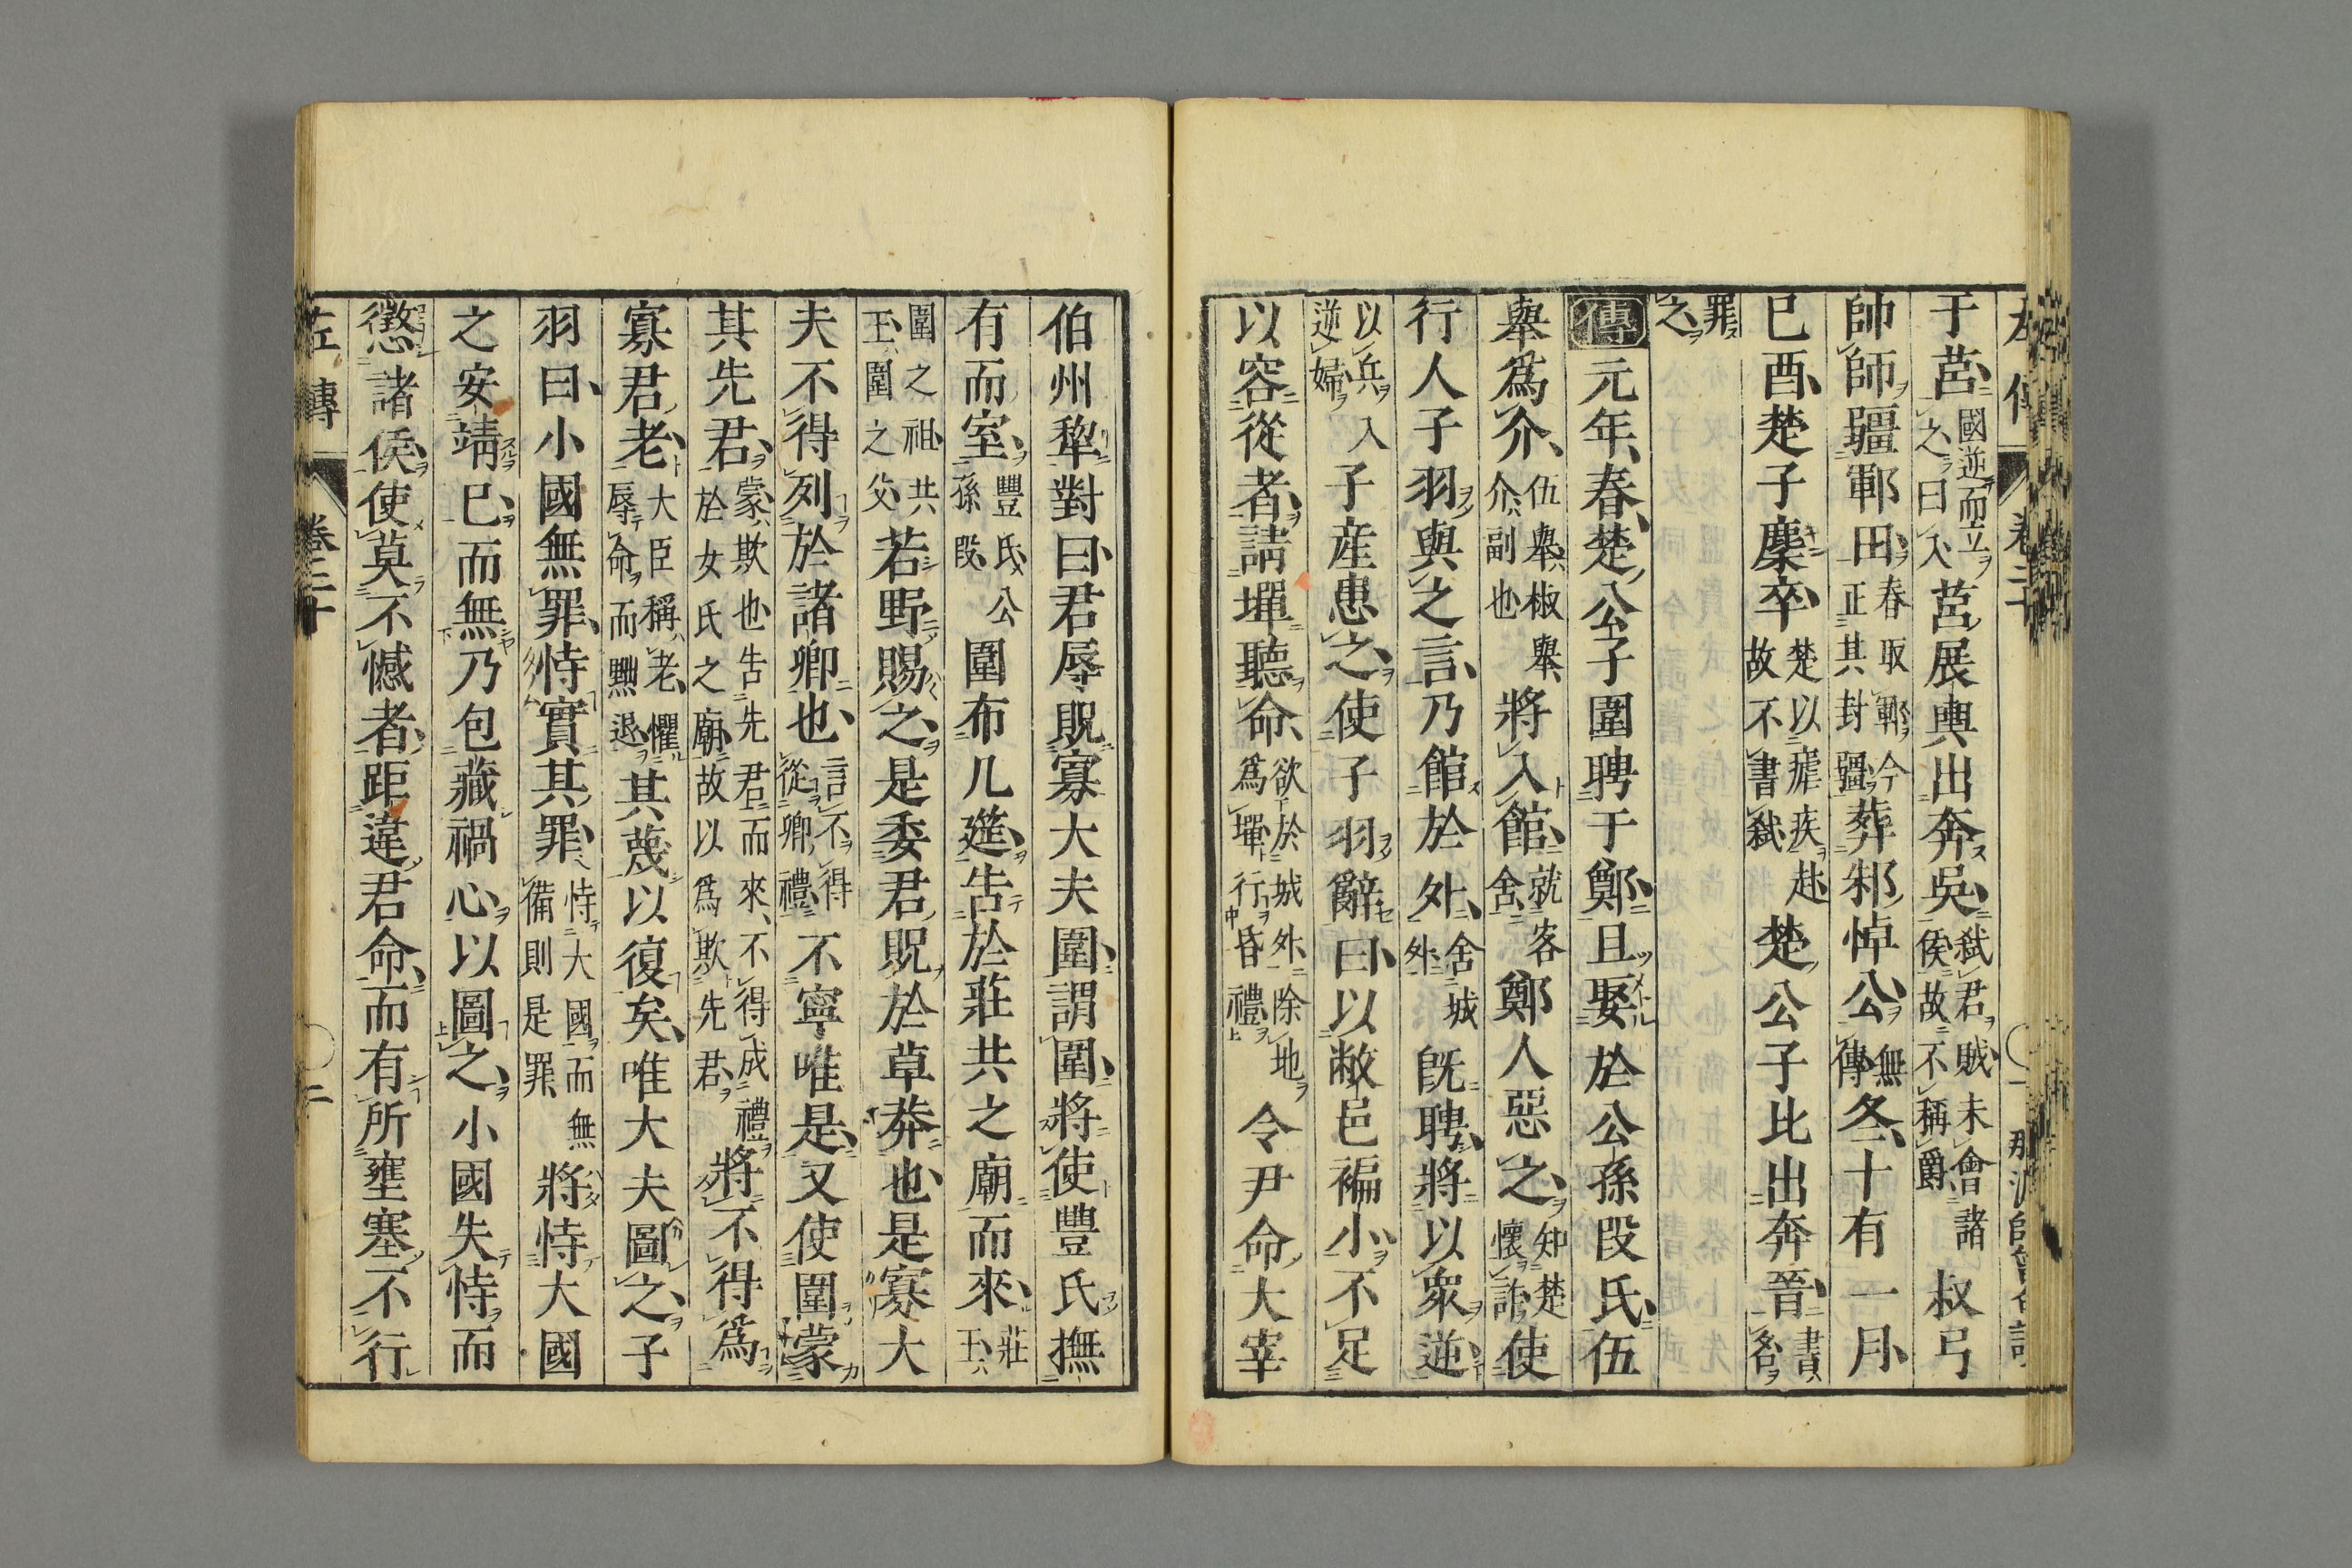 于莒國逆而立之曰入莒展輿出奔吳弑君賊未會諸侯故不稱爵叔弓
帥師疆鄆田春取鄆今正其封疆葬邾悼公無傳冬十有一月
巳酉楚子麇卒楚以瘧疾赴故不書弑楚公子比出奔晉書名
罪之
傳元年春楚公子圍聘于鄭且娶於公孫段氏伍
舉爲介伍舉椒舉介副也將入館就客舍鄭人惡之知楚懷詐使
行人子羽與之言乃館於外舍城外既聘將以衆逆
以兵入逆婦子產患之使子羽辭曰以敝邑褊小不足
以容從者請墠聽命欲於城外除地爲墠行昏禮令尹命大宰
伯州犂對曰君辱貺寡大夫圍謂圍將使豐氏撫
有而室豐氏公孫段圍布几筵告於莊共之廟而來莊王
圍之祖共王圍之父若野賜之是委君貺於草莽也是寡大
夫不得列於諸卿也言不得從卿禮不寧唯是又使圍蒙
其先君蒙欺也告先君而來不得成禮於女氏之廟故以爲欺先君將不得爲
寡君老大臣稱老懼辱命而黜退其蔑以復矣唯大夫圖之子
羽曰小國無罪恃實其罪恃大國而無備則是罪將恃大國
之安靖巳而無乃包藏禍心以圖之小國失恃而
懲諸侯使莫不憾者距違君命而有所壅塞不行
左傳 卷二十 二